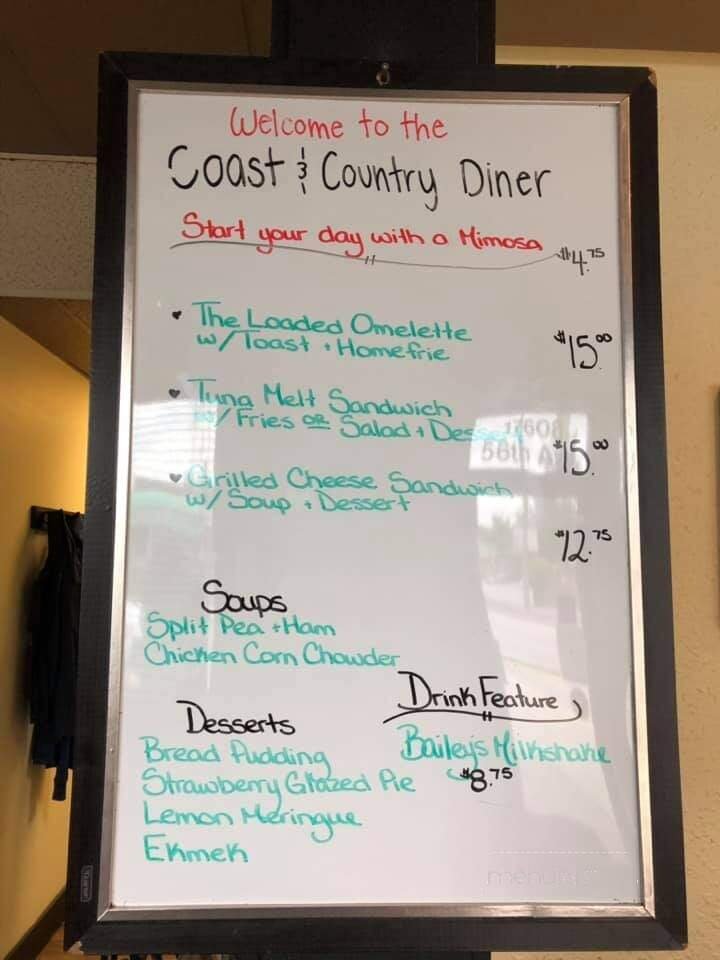 Welcome to the
Coast & Country Diner
Start your day with a Mimosa $4.75
The Loaded Omelette
w/ Toast + Homefrie $15.00
Tuna Melt Sandwich
w/ Fries OR Salad + Dessert $15.00
Grilled Cheese Sandwich
w/ Soup + Dessert
$12.75
Soups
Split Pea + Ham
Chicken Corn Chowder
Drink Feature
Bailey's Milkshake
$8.75
Desserts
Bread Pudding
Strawberry Glazed Pie
Lemon Meringue
Ekmek